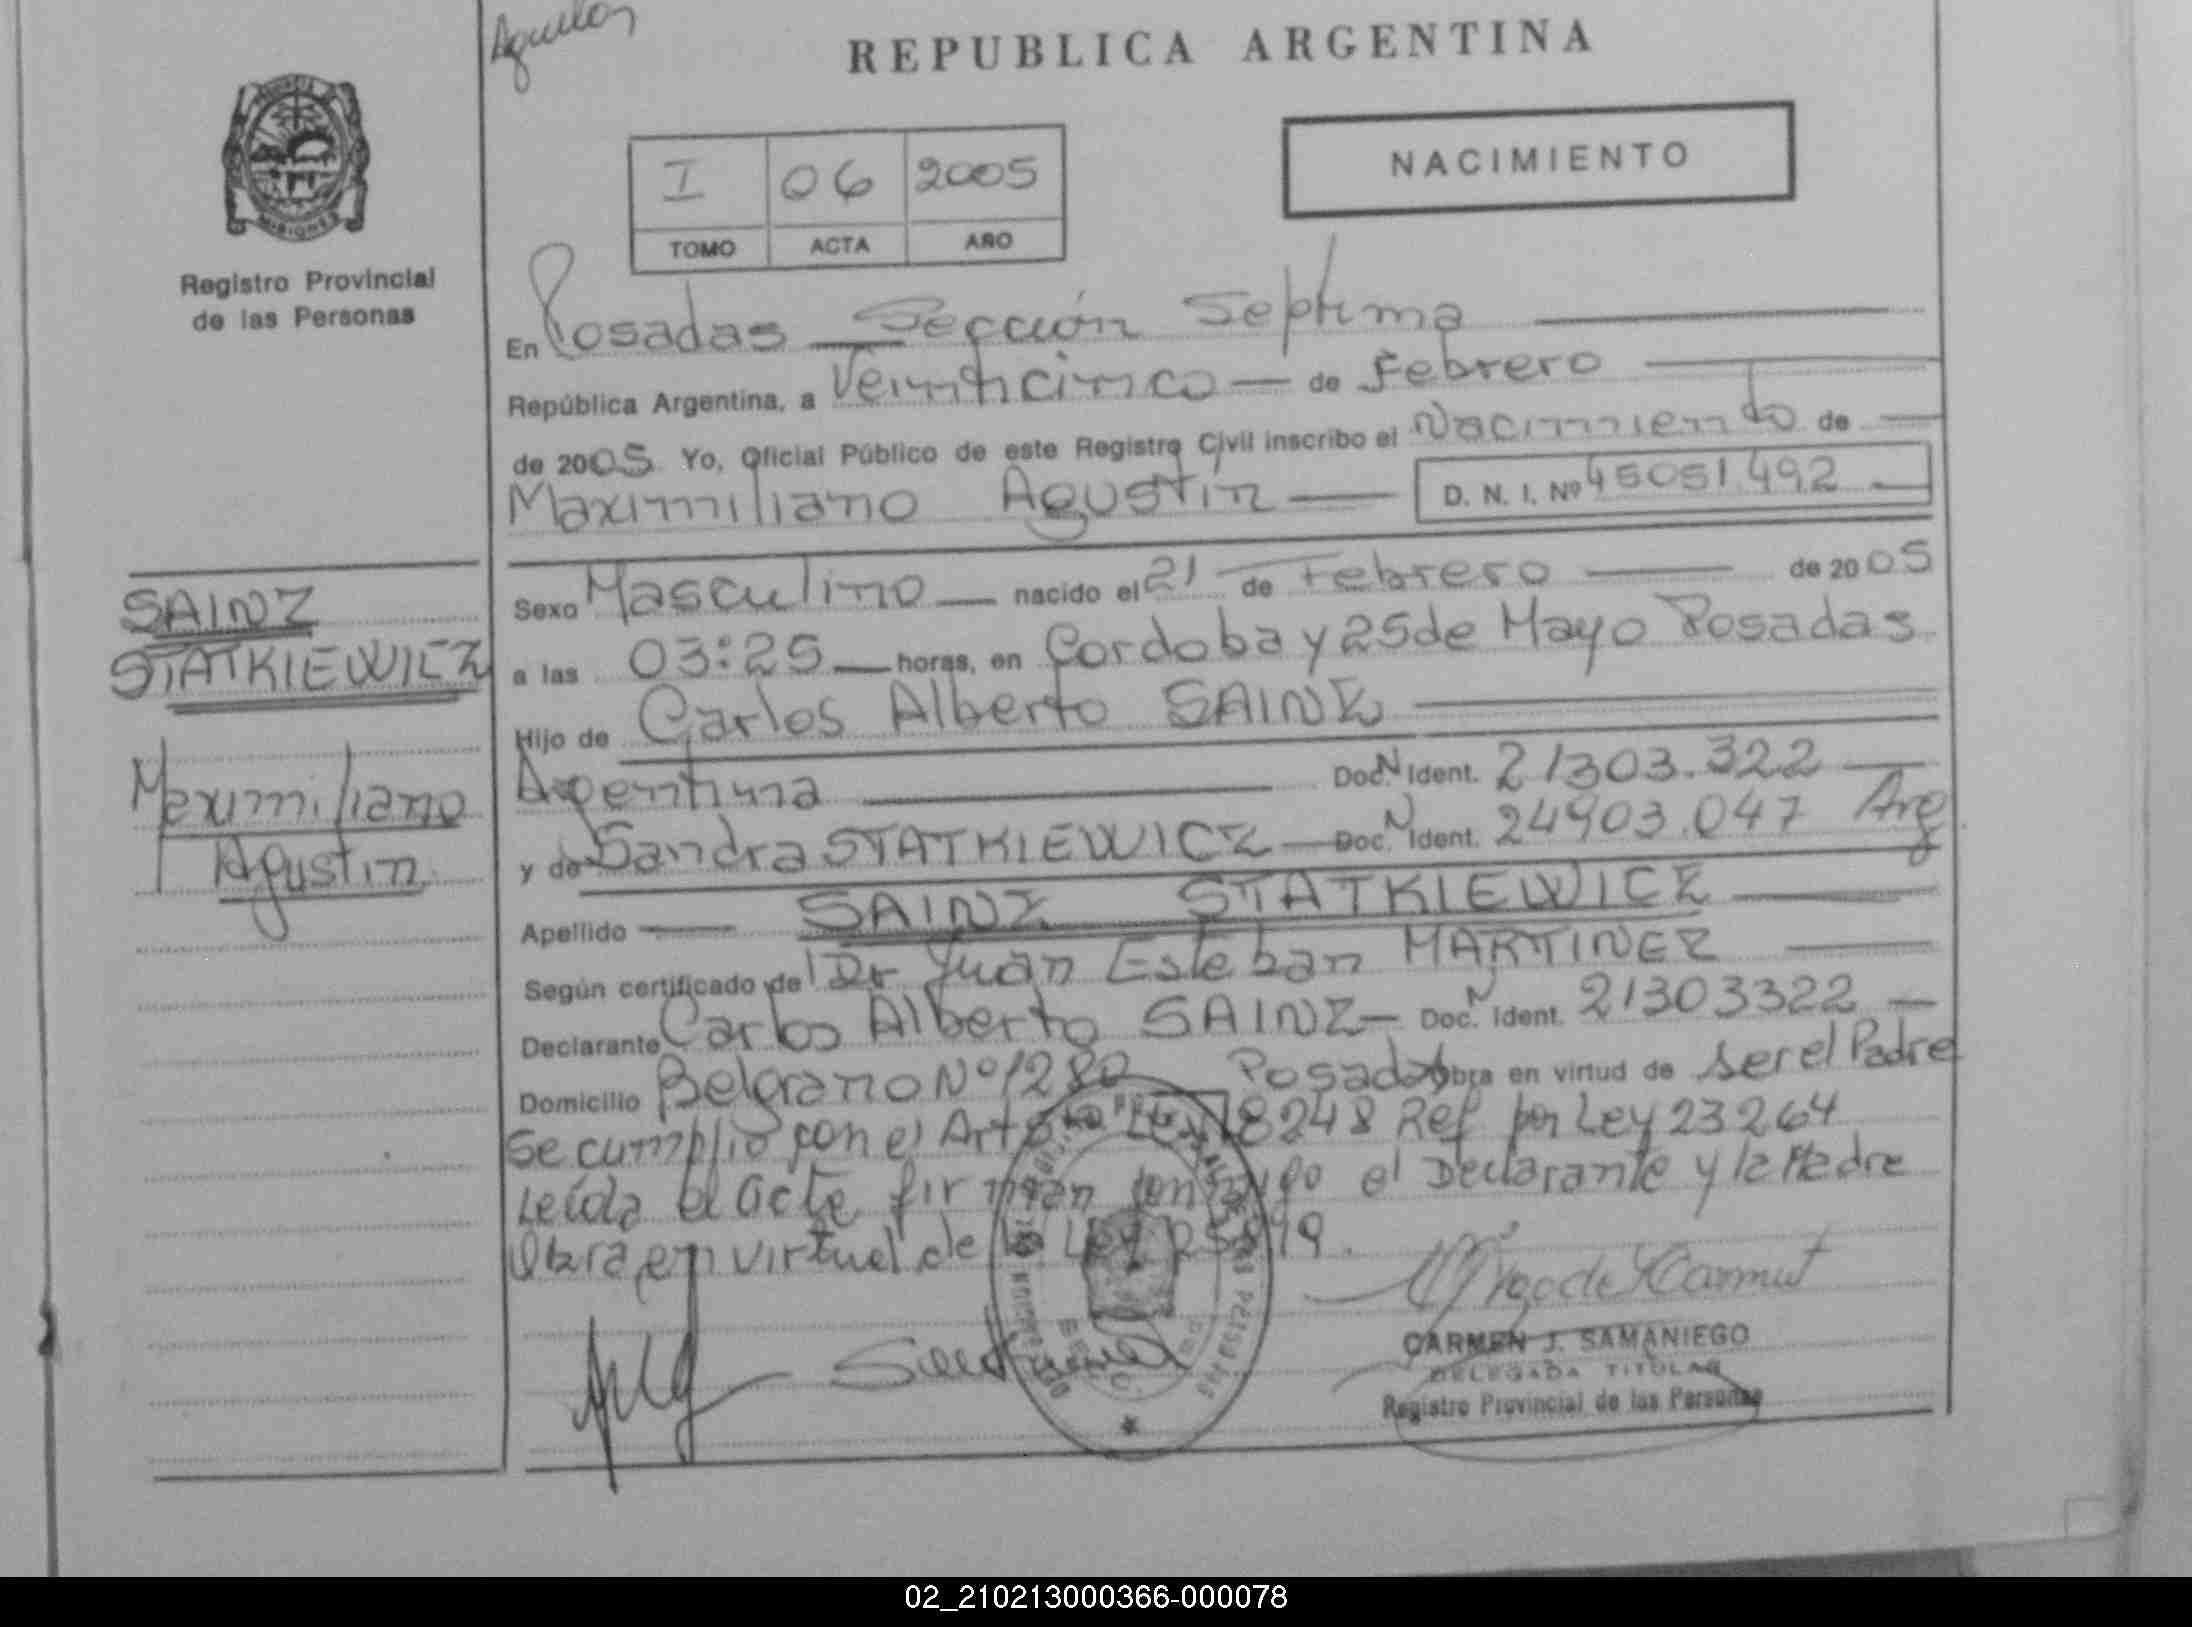 REPUBLICA ARGENTINA
NACIMIENTO
I 06 2005
TOMO ACTA AÑO
Registro Provincial
de las Personas
MISIONES
En Posadas Sección Septima
República Argentina, a Veinticinco de Febrero
de 2005 Yo, Oficial Público de este Registro Civil inscribo el Nacimiento de
Maximiliano Agustin D. N. I. Nº 45051492
SAINZ
STATKIEWICZ
Maximiliano
Agustin
Sexo Masculino nacido el 21 de Febrero de 2005
a las 03:25 horas, en Cordoba y 25 de Mayo Posadas
Hijo de Carlos Alberto SAINZ
Argentina Doc. N Ident. 21303.322
y de Sandra STATKIEWICZ Doc. N Ident. 24903.047 Arg
Apellido SAINZ STATKIEWICZ
Según certificado de Dr Juan Esteban MARTINEZ
Declarante Carlos Alberto SAINZ Doc. N Ident. 21303322
Domicilio Belgrano Nº 1280 Posadas Obra en virtud de ser el Padre
Se cumplio con el Art Ley 18248 Ref por Ley 23264
Leida el acta firman conmigo el Declarante y la Madre
Obra en virtud de la Ley
CARMEN J. SAMANIEGO
DELEGADA TITULAR
Registro Provincial de las Personas
02_210213000366-000078